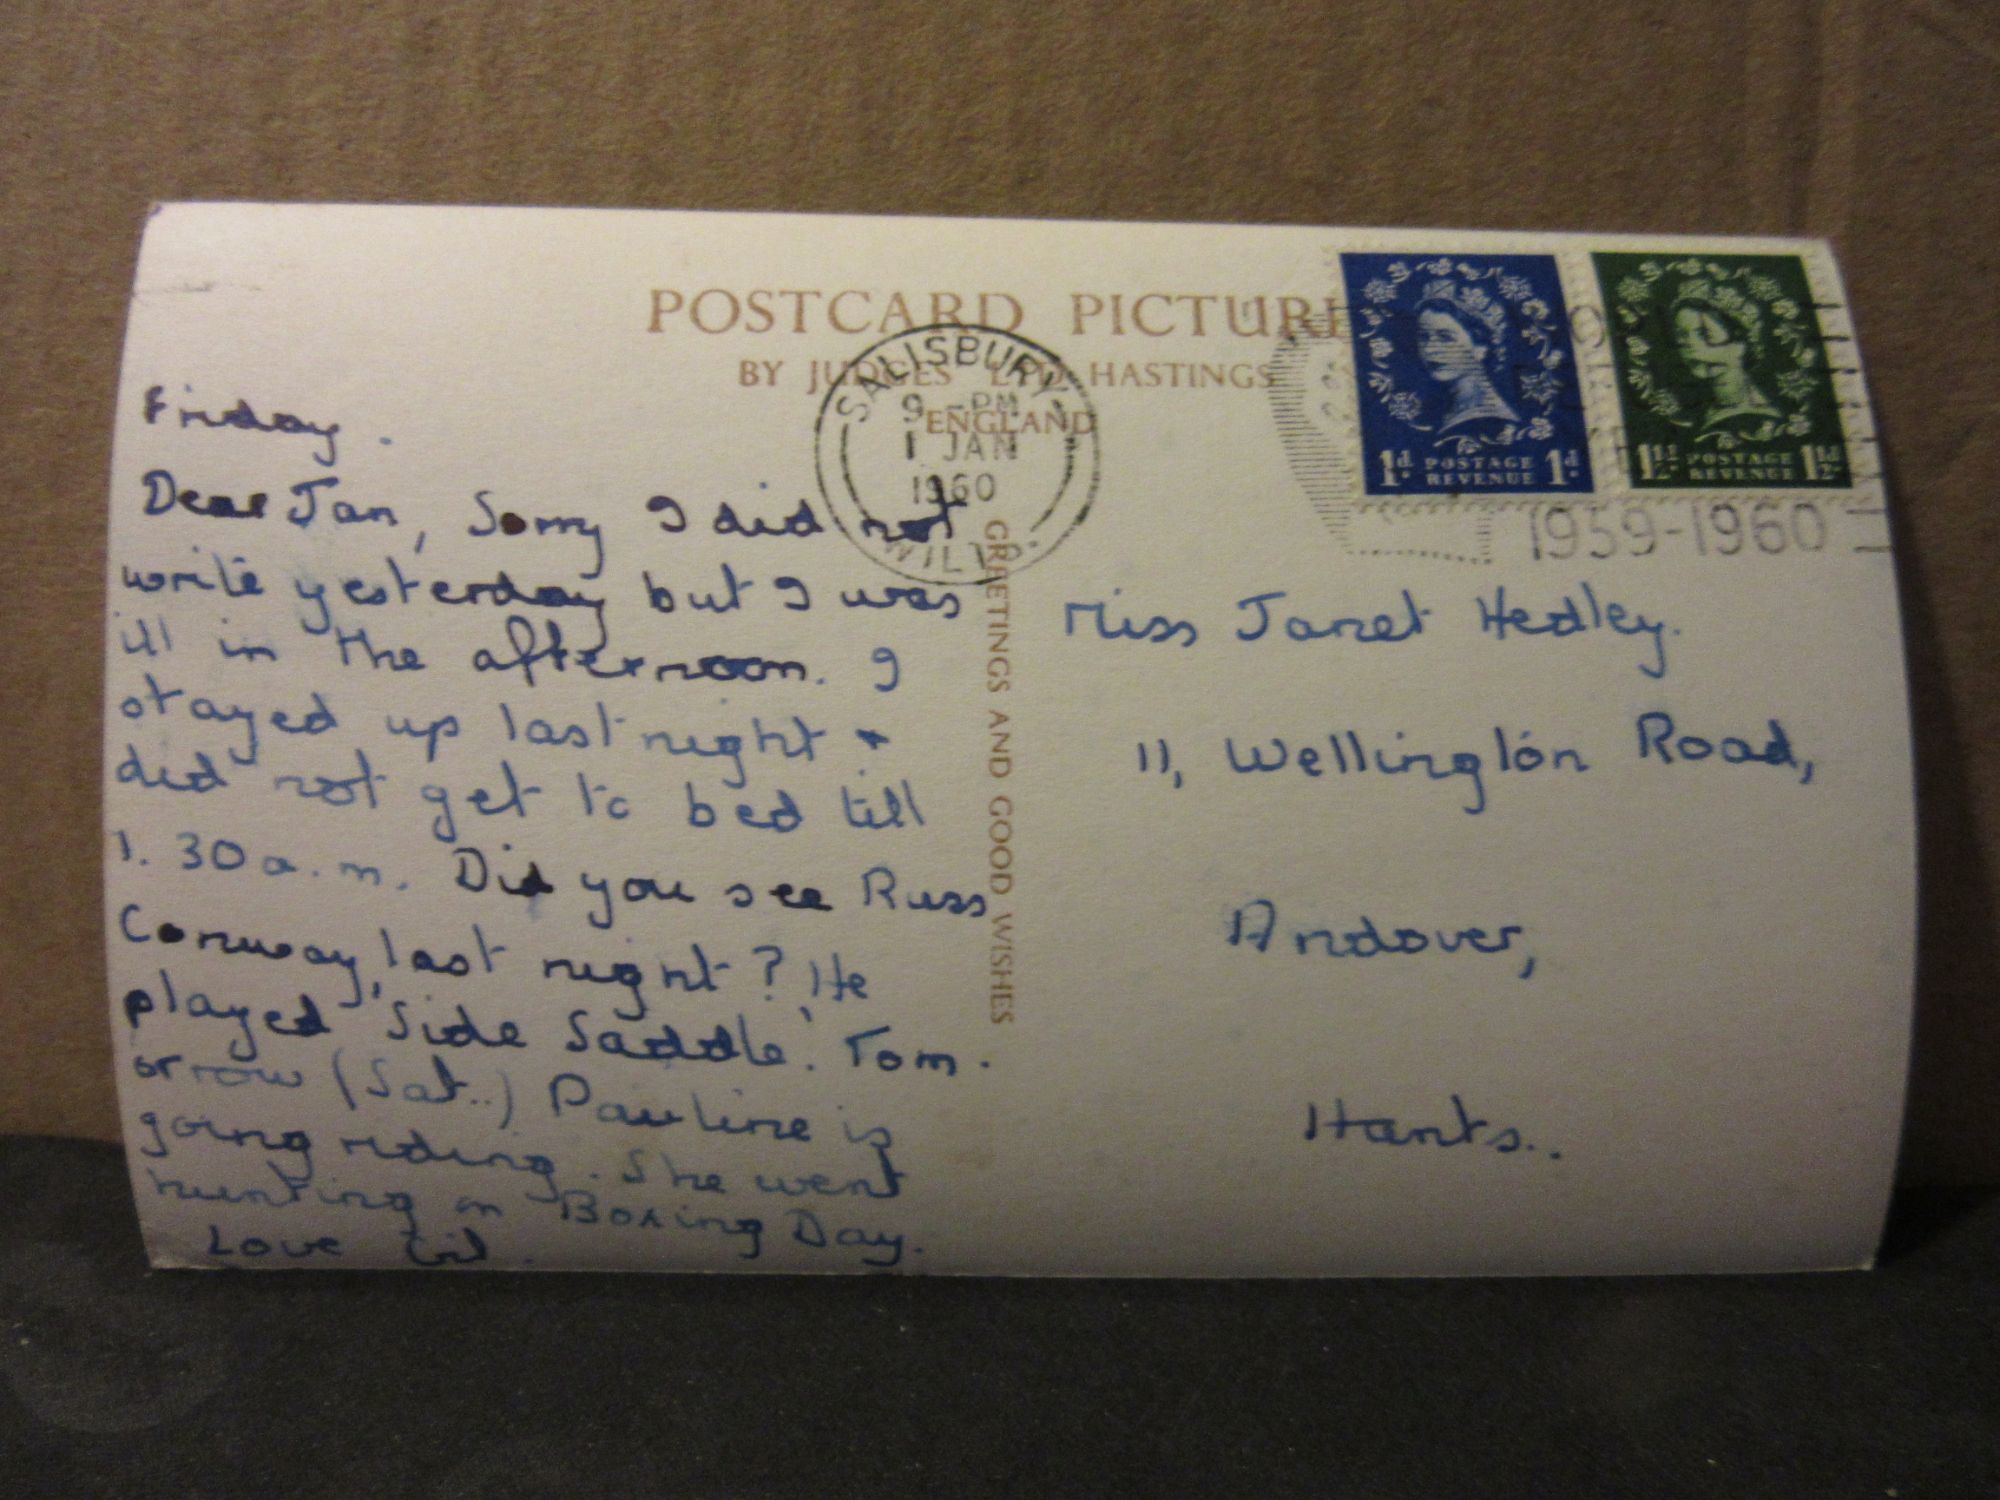 POSTCARD PICTURE
BY JUDGES LTD HASTINGS
ENGLAND
SALISBURY
9 - PM
1 JAN
1960
WILTS.
1d. POSTAGE REVENUE 1d.
1½d. POSTAGE REVENUE 1½d.
1959-1960
Friday.
Dear Jan, Sorry I did not
write yesterday but I was
ill in the afternoon. I
stayed up last night +
did not get to bed till
1.30 a.m. Did you see Russ
Conway, last night? He
played 'Side Saddle'. Tom-
orrow (Sat..) Pauline is
going riding. She went
hunting on Boxing Day.
Love
GREETINGS AND GOOD WISHES
Miss Janet Hedley.
11, Wellington Road,
Andover,
Hants..